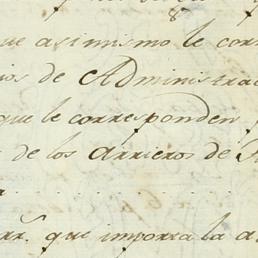 que asi mismo le corr
ios de Administrac
que le corresponden
de los Arrieros de
rrª. que importa la a